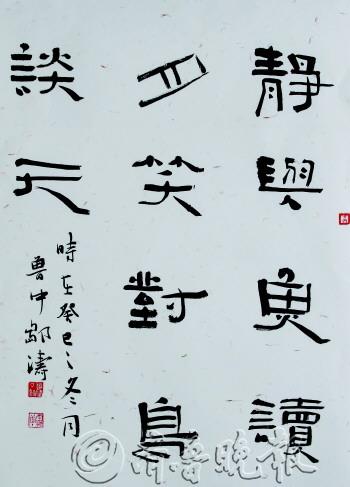 靜與魚讀
月笑對鳥
談天
時在癸巳之冬月
魯中鄒濤
齐鲁晚报